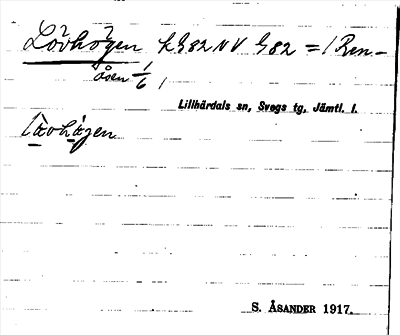 Lövhögen k G 82 NV G 82 = / Ren-
åsen 1/6 /
Lillhärdals sn, Svegs tg, Jämtl. l.
S. ÅSANDER 1917.